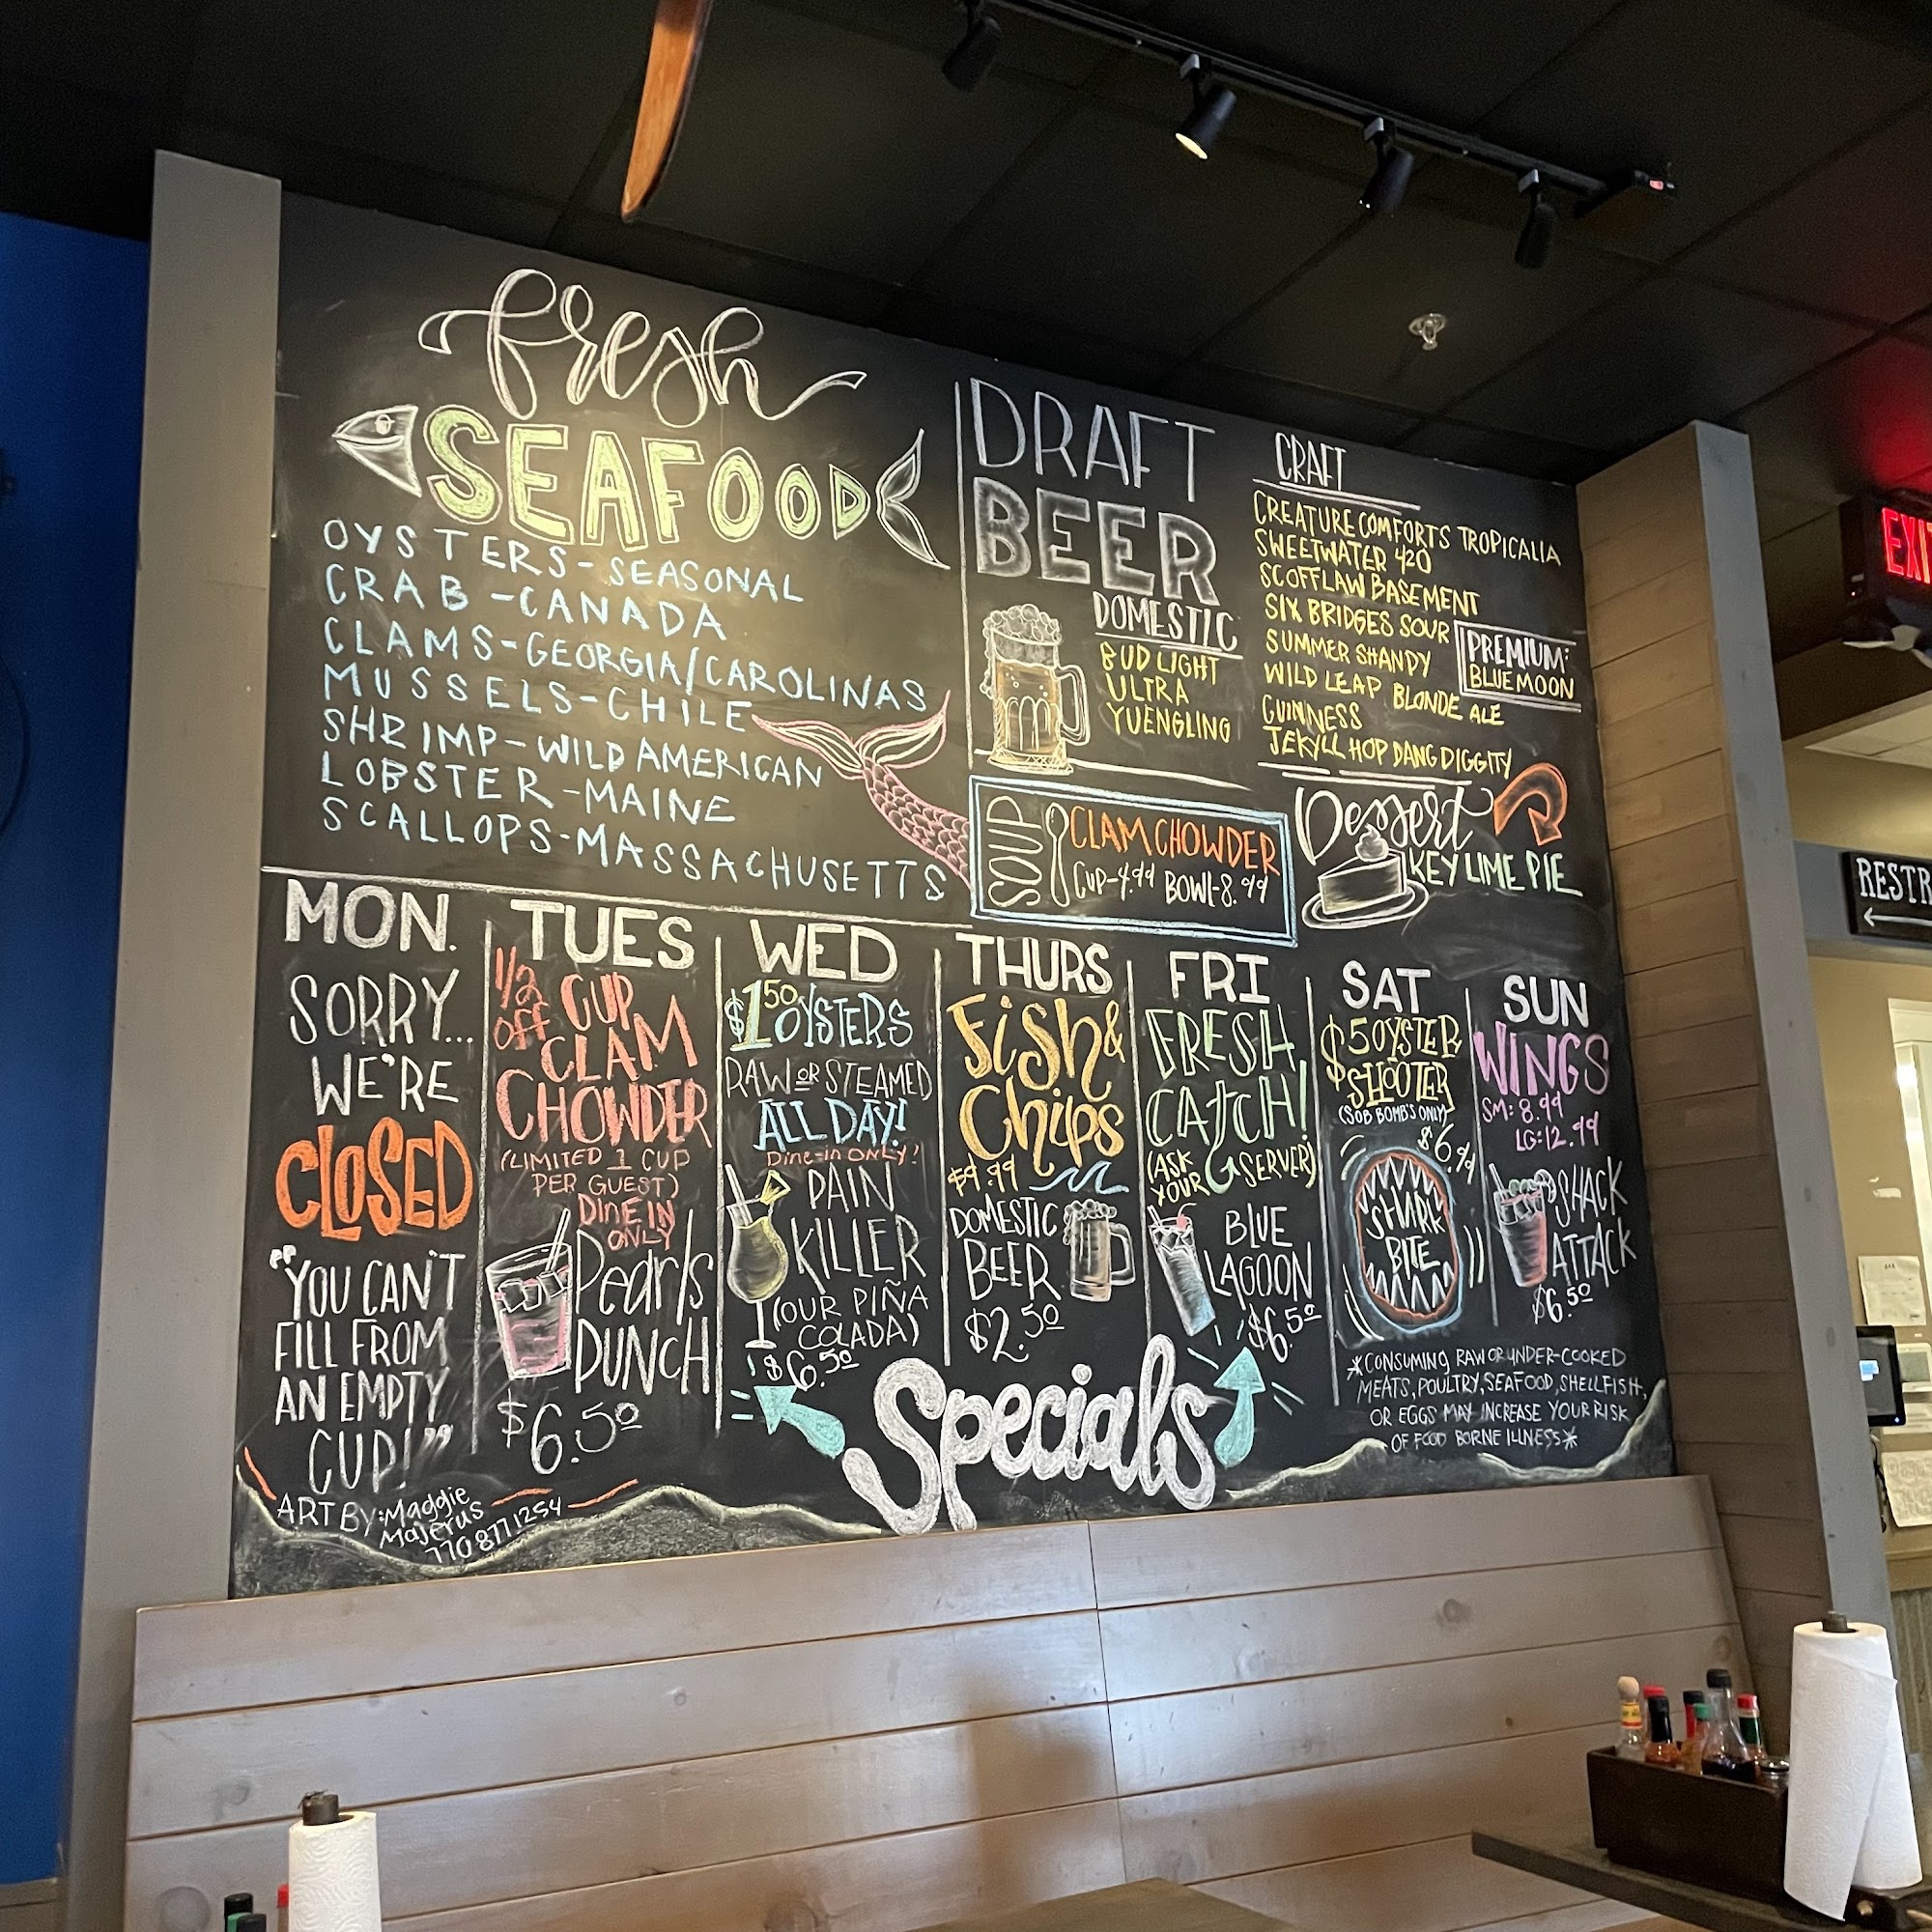 fresh
SEAFOOD
OYSTERS-SEASONAL
CRAB-CANADA
CLAMS-GEORGIA/CAROLINAS
MUSSELS-CHILE
SHRIMP-WILD AMERICAN
LOBSTER-MAINE
SCALLOPS-MASSACHUSETTS
DRAFT
BEER
DOMESTIC
BUD LIGHT
ULTRA
YUENGLING
CRAFT
CREATURE COMFORTS TROPICALIA
SWEETWATER 420
SCOFFLAW BASEMENT
SIX BRIDGES SOUR
SUMMER SHANDY
WILD LEAP BLONDE ALE
GUINNESS
JEKYLL HOP DANG DIGGITY
PREMIUM:
BLUE MOON
SOUP
CLAM CHOWDER
CUP-4.99 BOWL-8.99
Dessert
KEY LIME PIE
MON.
SORRY...
WE'RE
CLOSED
"YOU CAN'T
FILL FROM
AN EMPTY
CUP!"
ART BY: Maggie
Majerus
770 877 1254
TUES
1/2
OFF
CUP
CLAM
CHOWDER
(LIMITED 1 CUP
PER GUEST)
DINE IN
ONLY
Pearls
PUNCH
$6.50
WED
$1.50 OYSTERS
RAW OR STEAMED
ALL DAY!
Dine-in ONLY!
PAIN
KILLER
(OUR PIÑA
COLADA)
$6.50
THURS
Fish &
Chips
$9.99
DOMESTIC
BEER
$2.50
FRI
FRESH
CATCH!
(ASK
YOUR SERVER)
BLUE
LAGOON
$6.50
SAT
$5 OYSTER
SHOOTER
(SOB BOMB'S ONLY)
$6.99
SHARK
BITE
SUN
WINGS
SM: 8.99
LG: 12.99
SHACK
ATTACK
$6.50
Specials
*CONSUMING RAW OR UNDER-COOKED
MEATS, POULTRY, SEAFOOD, SHELLFISH,
OR EGGS MAY INCREASE YOUR RISK
OF FOOD BORNE ILLNESS*
EXI
RESTR